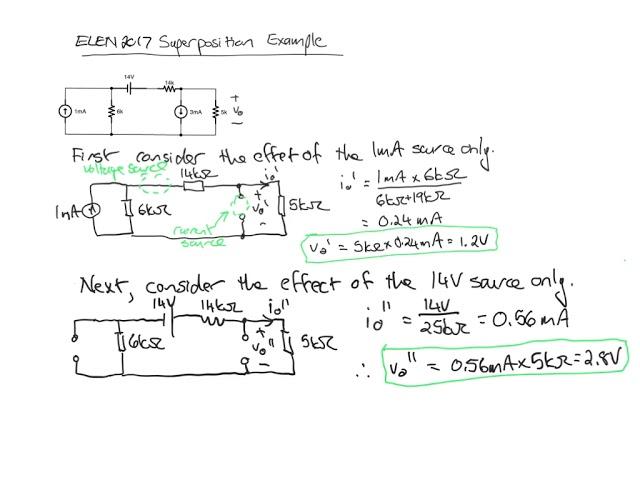 ELEN2017 Superposition Example
14V
14k
1mA
6k
3mA
5k
+
Vo
−
First consider the effet of the 1mA source only.
voltage source
14kΩ
io'
1mA
6kΩ
+
vo'
−
5kΩ
current source
io' = 1mA × 6kΩ / 6kΩ+19kΩ
= 0.24 mA
vo' = 5kΩ × 0.24mA = 1.2V
Next, consider the effect of the 14V source only.
14V
14kΩ
io''
6kΩ
+
vo''
−
5kΩ
io'' = 14V / 25kΩ = 0.56 mA
∴ vo'' = 0.56mA×5kΩ=2.8V